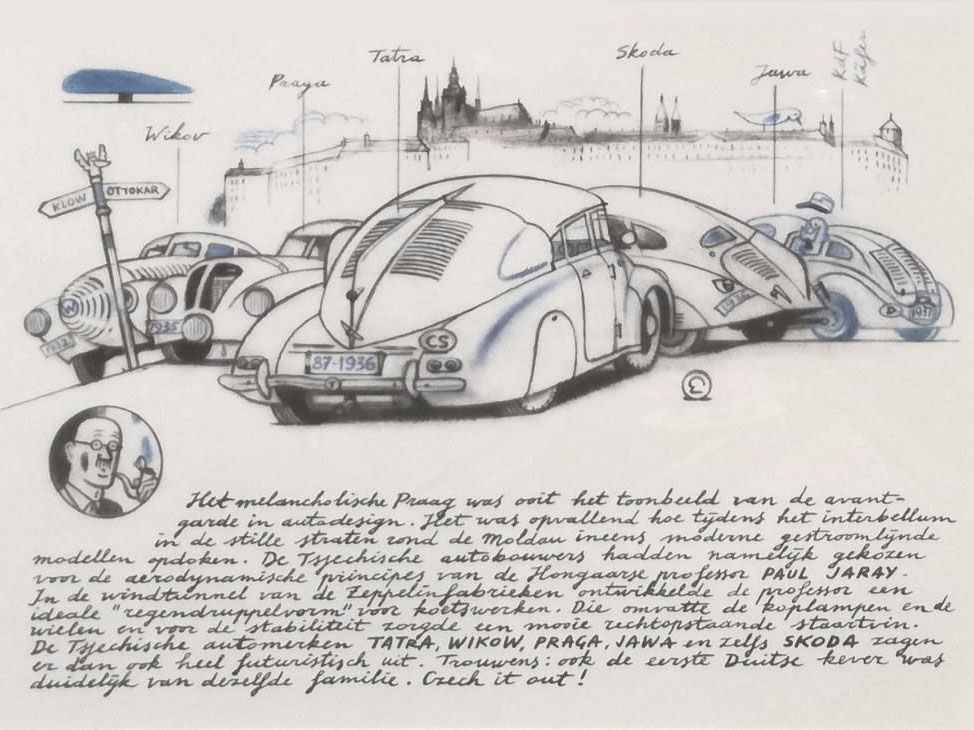 Tatra
Skoda
Praga
Jawa
KdF
Käfer
Wikov
KLOW
OTTOKAR
W
1935
CS
87-1936
T
D
1937
Het melancholische Praag was ooit het toonbeeld van de avant-
garde in autodesign. Het was opvallend hoe tijdens het interbellum
in de stille straten rond de Moldau ineens moderne gestroomlijnde
modellen opdoken. De Tsjechische autobouwers hadden namelijk gekozen
voor de aerodynamische principes van de Hongaarse professor PAUL JARAY.
In de windtunnel van de Zeppelinfabrieken ontwikkelde de professor een
ideale "regendruppelvorm" voor koetswerken. Die omvatte de koplampen en de
wielen en voor de stabiliteit zorgde een mooie rechtopstaande staartvin.
De Tsjechische automerken TATRA, WIKOW, PRAGA, JAWA en zelfs SKODA zagen
er dan ook heel futuristisch uit. Trouwens: ook de eerste Duitse kever was
duidelijk van dezelfde familie. Czech it out!